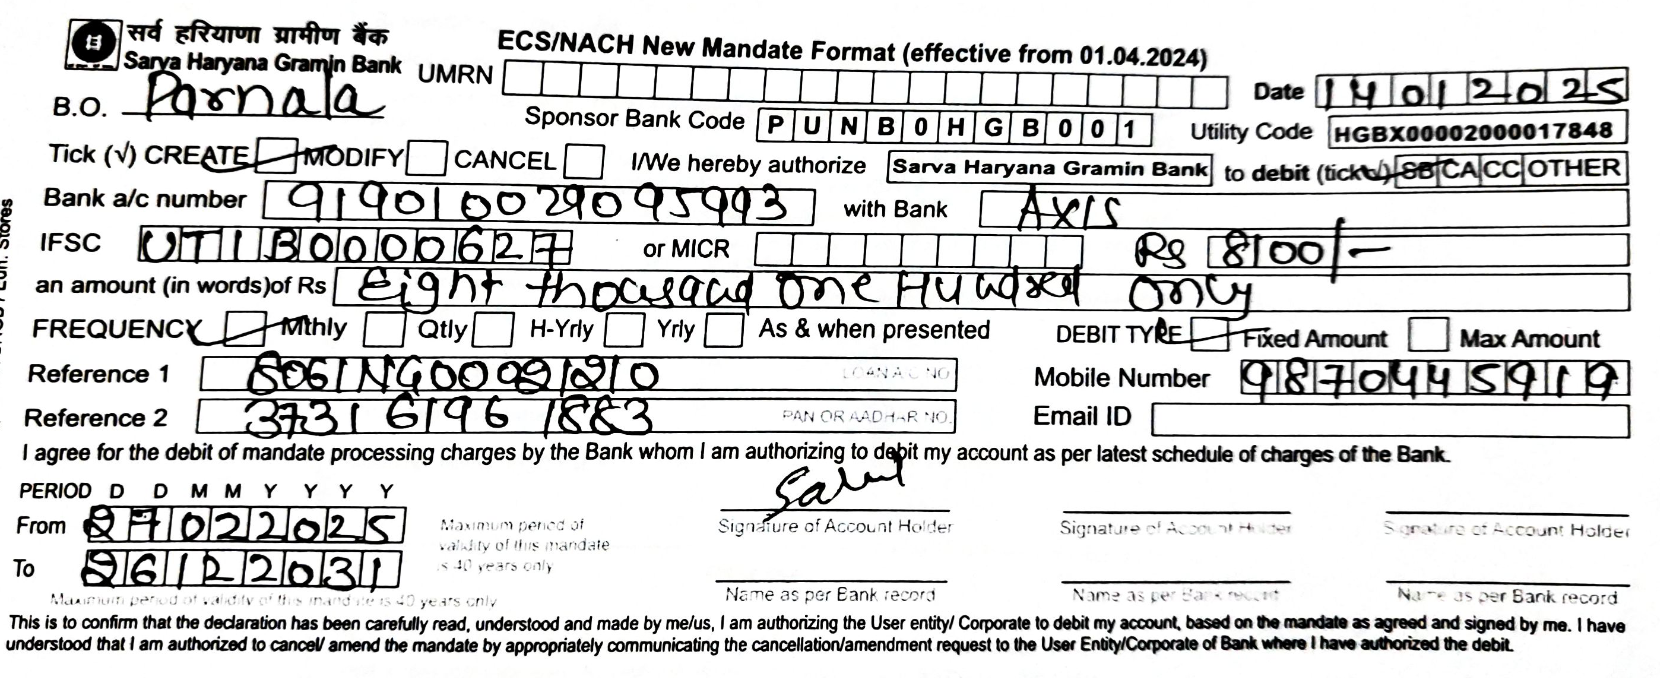 सर्व हरियाणा ग्रामीण बैंक
Sarva Haryana Gramin Bank
ECS/NACH New Mandate Format (effective from 01.04.2024)
B.O. Parnala UMRN Date 14012025
Sponsor Bank Code PUNB0HGB001 Utility Code HGBX00002000017848
Tick (√) CREATE MODIFY CANCEL I/We hereby authorize Sarva Haryana Gramin Bank to debit (tick√) SB CA CC OTHER
Bank a/c number 919010029095993 with Bank AXIS
IFSC UTIB0000627 or MICR Rs 8100/-
an amount (in words)of Rs Eight thousand one Hundred only
FREQUENCY Mthly Qtly H-Yrly Yrly As & when presented DEBIT TYPE Fixed Amount Max Amount
Reference 1 LOAN A/C NO Mobile Number 9870445919
Reference 2 3731 6196 1883 PAN OR AADHAR NO. Email ID
I agree for the debit of mandate processing charges by the Bank whom I am authorizing to debit my account as per latest schedule of charges of the Bank.
PERIOD D D M M Y Y Y Y
From 27022025
To 26122031
Maximum period of validity of this mandate is 40 years only
Signature of Account Holder Signature of Account Holder Signature of Account Holder
Name as per Bank record Name as per Bank record Name as per Bank record
Maximum period of validity of this mandate is 40 years only
This is to confirm that the declaration has been carefully read, understood and made by me/us, I am authorizing the User entity/ Corporate to debit my account, based on the mandate as agreed and signed by me. I have
understood that I am authorized to cancel/ amend the mandate by appropriately communicating the cancellation/amendment request to the User Entity/Corporate of Bank where I have authorized the debit.